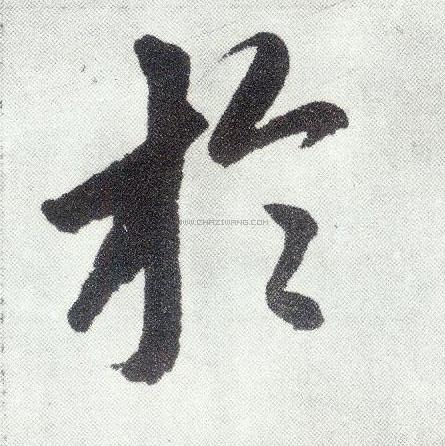 於
WWW.CHAZIWANG.COM